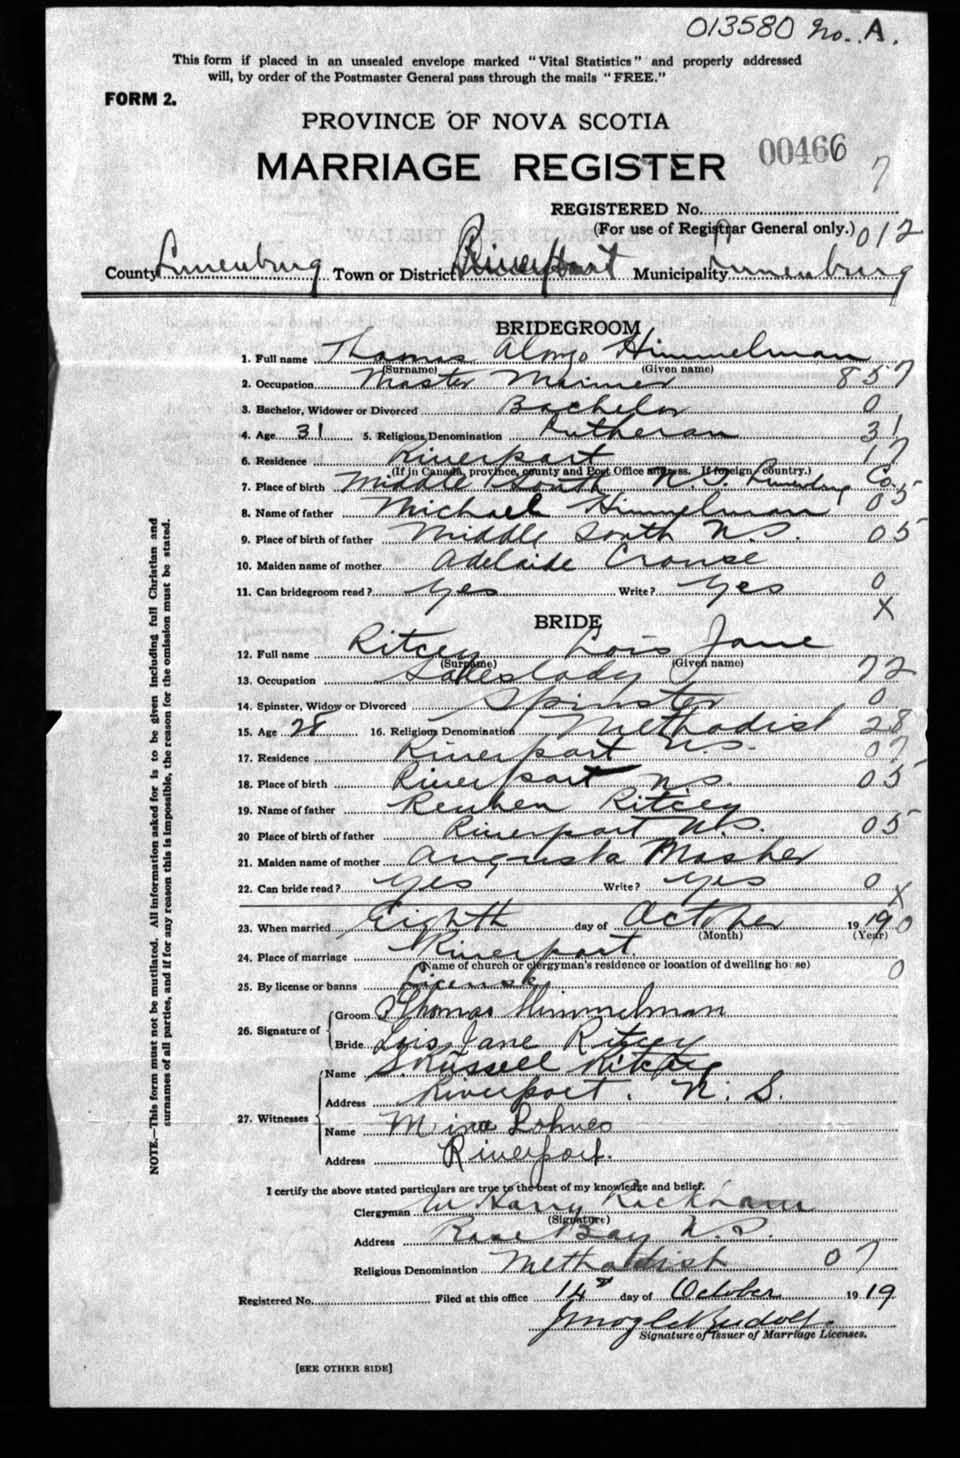 013580 No. A.
This form if placed in an unsealed envelope marked "Vital Statistics" and properly addressed
will, by order of the Postmaster General pass through the mails "FREE."
FORM 2.
PROVINCE OF NOVA SCOTIA
MARRIAGE REGISTER
00466
7
REGISTERED No.
(For use of Registrar General only.) 012
County Lunenburg Town or District Riverport Municipality Lunenburg
BRIDEGROOM
1. Full name Thomas Alonzo Himmelman
(Surname) (Given name)
2. Occupation Master Mariner 857
3. Bachelor, Widower or Divorced Bachelor 0
4. Age 31 5. Religious Denomination Lutheran 31
6. Residence Riverport 17
(If in Canada, province, county and Post Office address. If foreign country.)
7. Place of birth Middle South N.S. Lunenburg Co.
8. Name of father Michael Himmelman 05
9. Place of birth of father Middle South N.S. 05
10. Maiden name of mother Adelaide Crouse
11. Can bridegroom read? Yes Write? Yes 0
X
BRIDE
12. Full name Ritcey Lois Jane
(Surname) (Given name)
13. Occupation Saleslady 72
14. Spinster, Widow or Divorced Spinster 0
15. Age 28 16. Religious Denomination Methodist 28
17. Residence Riverport N.S. 07
18. Place of birth Riverport N.S. 05
19. Name of father Reuben Ritcey
20 Place of birth of father Riverport N.S. 05
21. Maiden name of mother Augusta Mosher
22. Can bride read? Yes Write? Yes 0
X
23. When married Eighth day of October 1919 0
(Month) (Year)
24. Place of marriage Riverport
(Name of church or clergyman's residence or location of dwelling house)
25. By license or banns License 0
26. Signature of Groom Thomas Himmelman
Bride Lois Jane Ritcey
27. Witnesses Name S. Russell Ritcey
Address Riverport. N. S.
Name Mina Lohnes
Address Riverport.
I certify the above stated particulars are true to the best of my knowledge and belief.
Clergyman W Harry Rackham
(Signature)
Address Rose Bay N.S.
Religious Denomination Methodist 07
Registered No. Filed at this office 14th day of October 1919
Signature of Issuer of Marriage Licenses.
[SEE OTHER SIDE]
NOTE.—This form must not be mutilated. All information asked for is to be given including full Christian and
surnames of all parties, and if for any reason this is impossible, the reason for the omission must be stated.